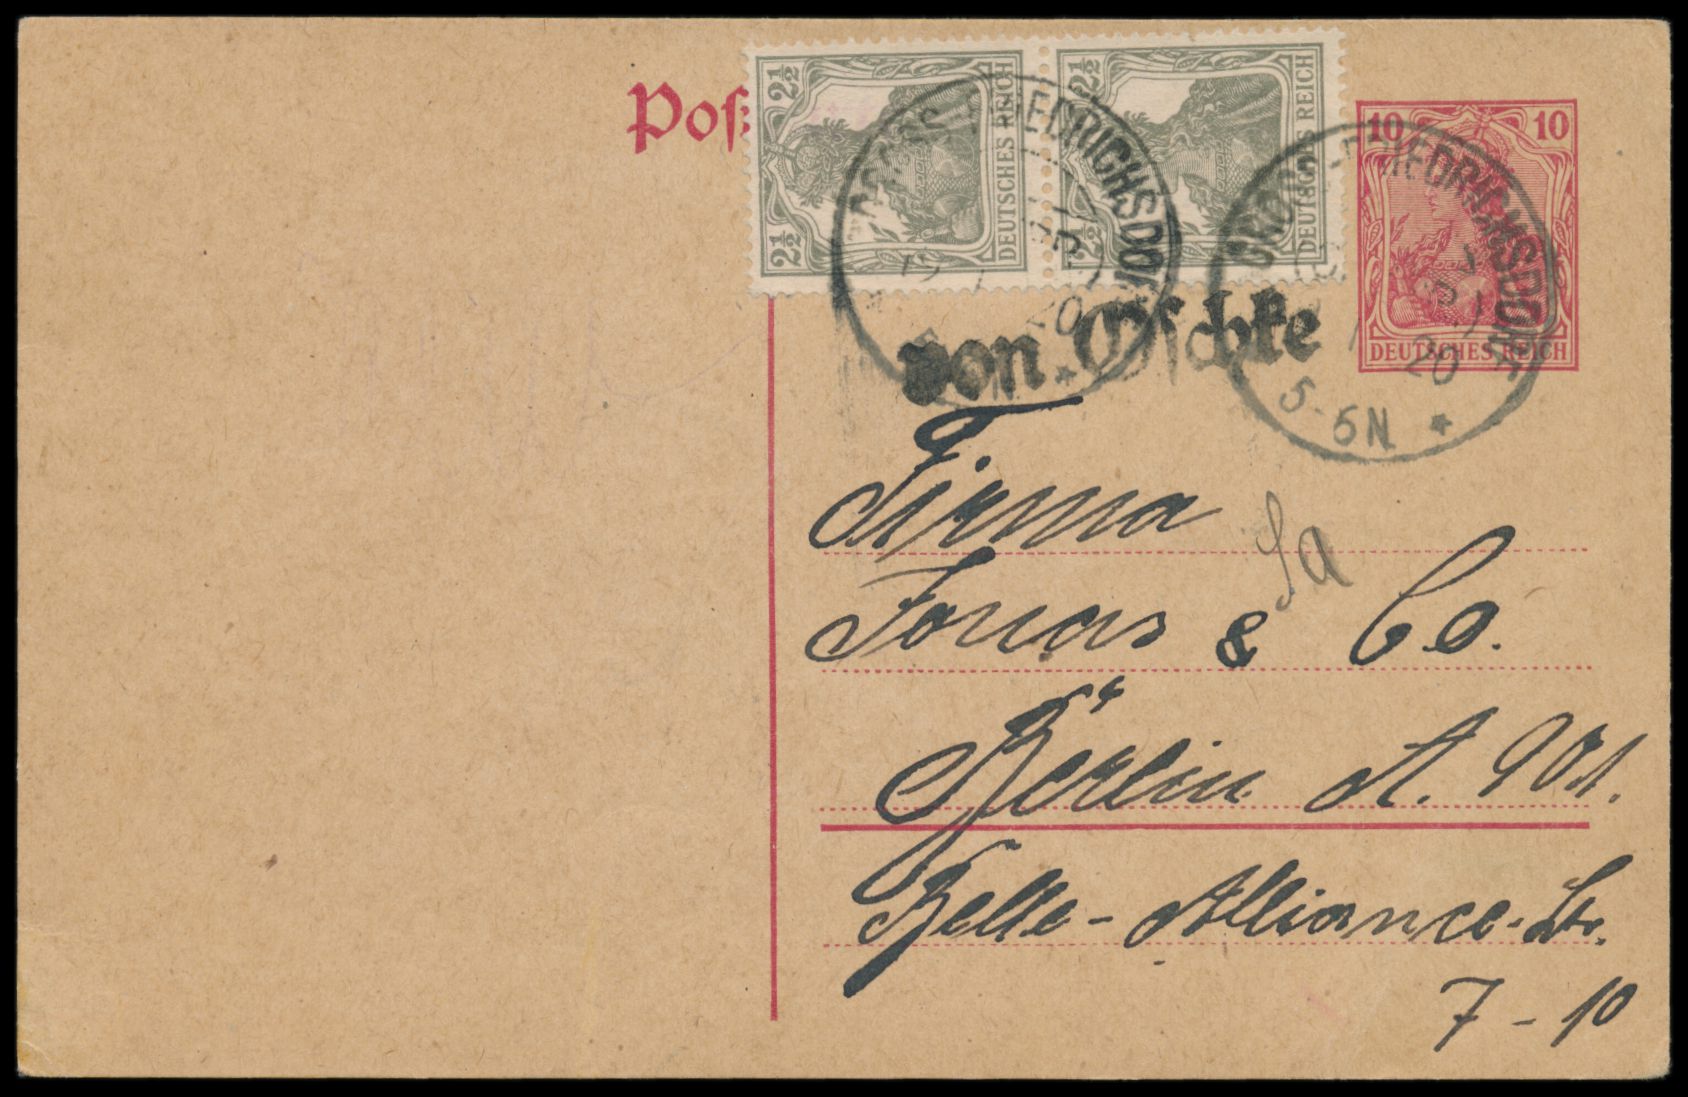 Post
2½ 2½ DEUTSCHES REICH
2½ 2½ DEUTSCHES REICH
10 10
DEUTSCHES REICH
GROSS-FRIEDRICHSDORF
20
GROSS-FRIEDRICHSDORF
20
5-6N *
von Oschke
Firma
Jonas & Co.
Berlin
Belle-Alliance-Str.
7-10